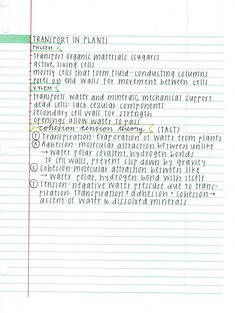 TRANSPORT IN PLANTS
PHLOEM
transport organic materials (sugars)
active, living cells
mostly cells that form fluid-conducting columns
pores on end walls for movement between cells
XYLEM
transports water and minerals, mechanical support
dead cells: lack cellular component
secondary cell wall for strength
openings allow water to pass
cohesion-tension theory (TACT)
Ⓣ Transpiration: evaporation of water from plants
Ⓐ Adhesion: molecular attraction between unlike
→ water polar covalent, hydrogen bonds
to cell walls, prevent slip down by gravity
Ⓒ cohesion: molecular attraction between like
→ water polar, hydrogen bond with itself
Ⓣ tension: negative water pressure due to trans-
piration. transpiration + adhesion + cohesion →
ascent of water & dissolved minerals